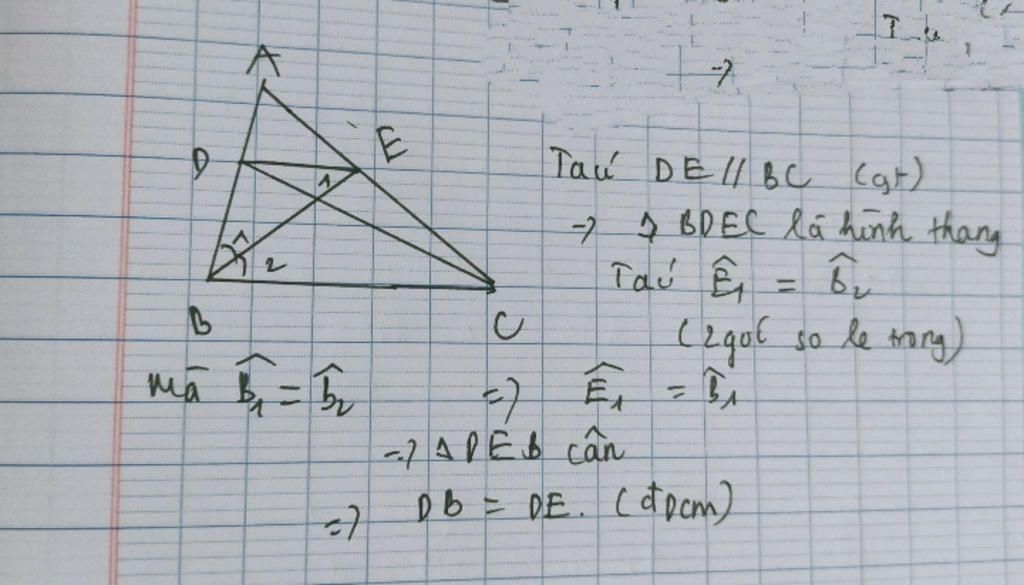 A
D
E
1
2
B
C
Taú DE // BC (gt)
-> BDEC là hình thang
Taú Ê₁ = B̂₂
(2 góc so le trong)
mà B̂₁ = B̂₂ => Ê₁ = B̂₁
=> Δ DEB cân
=> DB = DE. (đpcm)